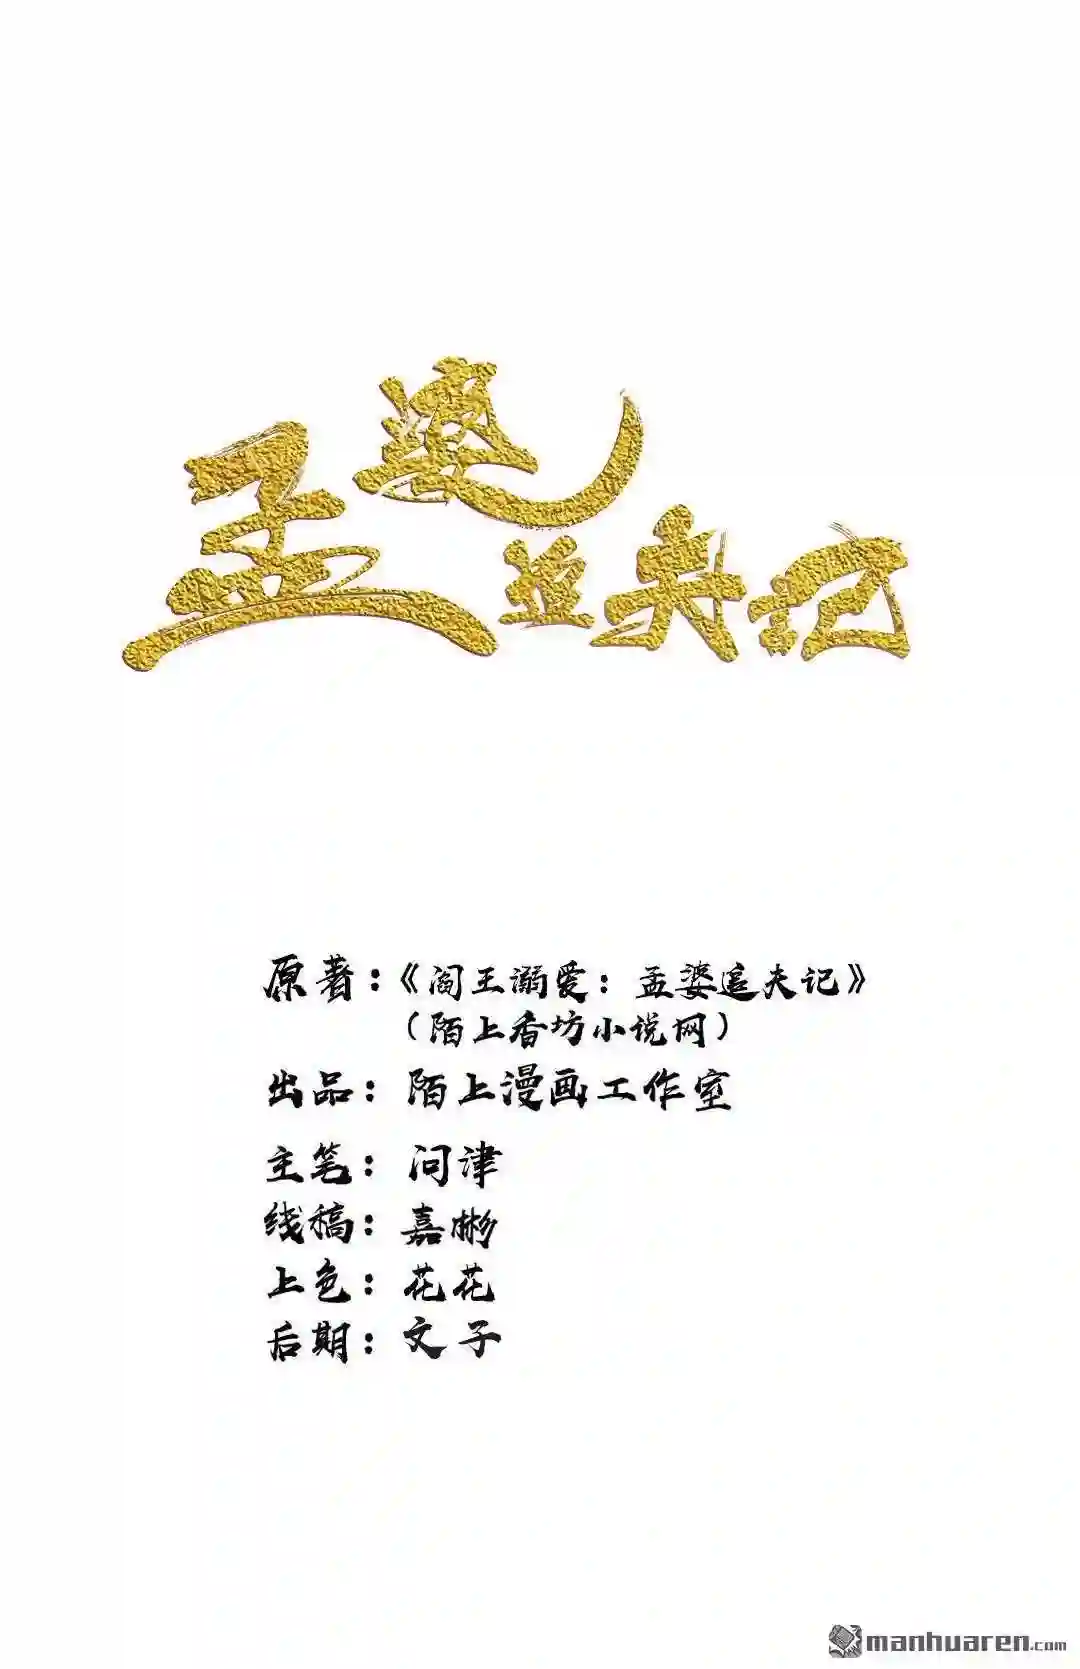 孟婆追夫记
原著：《阎王溺爱：孟婆追夫记》
（陌上香坊小说网）
出品：陌上漫画工作室
主笔：问津
线稿：嘉彬
上色：花花
后期：文子
manhuaren.com